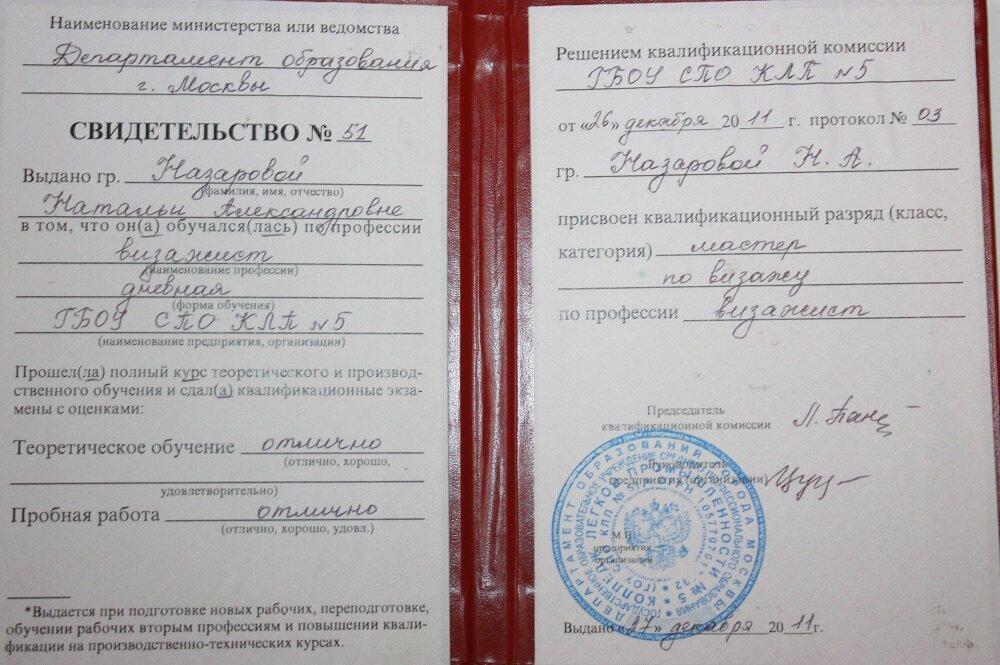 Наименование министерства или ведомства
Департамент образования
г. Москвы
СВИДЕТЕЛЬСТВО № 51
Выдано гр. Назаровой
(фамилия, имя, отчество)
Натальи Александровне
в том, что он(а) обучался(лась) по профессии
визажист
(наименование профессии)
дневная
(форма обучения)
ГБОУ СПО КЛП №5
(наименование предприятия, организации)
Прошел(ла) полный курс теоретического и производ-
ственного обучения и сдал(а) квалификационные экза-
мены с оценками:
Теоретическое обучение отлично
(отлично, хорошо,
удовлетворительно)
Пробная работа отлично
(отлично, хорошо, удовл.)
*Выдается при подготовке новых рабочих, переподготовке,
обучении рабочих вторым профессиям и повышении квали-
фикации на производственно-технических курсах.
Решением квалификационной комиссии
ГБОУ СПО КЛП №5
от «26» декабря 2011 г. протокол № 03
гр. Назаровой Н. А.
присвоен квалификационный разряд (класс,
категория) мастер
по визажу
по профессии визажист
Председатель
квалификационной комиссии
Руководитель
предприятия (организации)
М.П.
предприятия
организации
ДЕПАРТАМЕНТ ОБРАЗОВАНИЯ ГОРОДА МОСКВЫ
КОЛЛЕДЖ ЛЕГКОЙ ПРОМЫШЛЕННОСТИ № 5
Выдано «27» декабря 2011г.